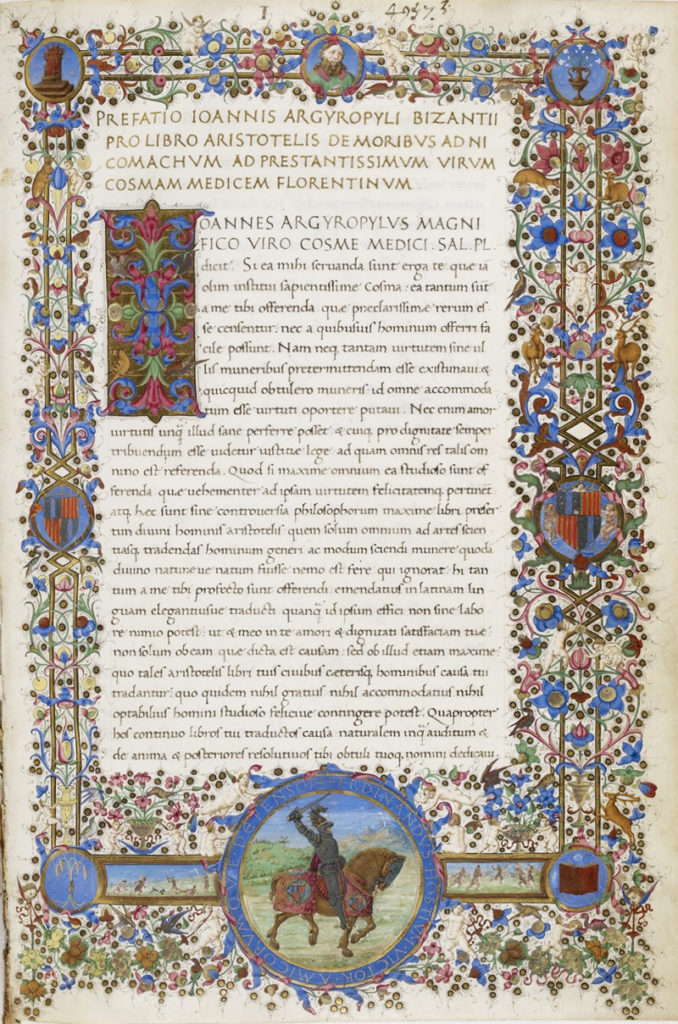 I 4937.3
PREFATIO IOANNIS ARGYROPYLI BIZANTII
PRO LIBRO ARISTOTELIS DE MORIBUS AD NI
COMACHVM AD PRESTANTISSIMVM VIRVM
COSMAM MEDICEM FLORENTINVM
IOANNES ARGYROPYLVS MAGNI
FICO VIRO COSME MEDICI. SAL. PL
dicit. Si ea mihi seruanda sunt erga te que iā
olim institui sapientissime Cosma: ea tantum sūt
a me tibi offerenda que preclarissimæ rerum es
se censentur: nec a quibusuis hominum offerri fa
cile possunt. Nam neq, tantam uirtutem sine ul
lis muneribus pretermittendam esse existimaui &
quicquid obtulero muneris id omne accommoda
tum esse uirtuti oportere putaui. Nec enim amor
uirtutis unq̄ illud sane perferre posset & cuiq, pro dignitate semper
tribuendum esse uidetur iustitie lege: ad quam omnis res talis om
nino est referenda. Quod si maxime omnium ea studioso sunt of
ferenda que uehementer ad ipsam uirtutem felicitatemq, pertinēt:
atq, hec sunt sine controuersia philosophorum maxime libri preser
tim diuini hominis aristotelis quem solum omnium ad artes scien
tiasq, tradendas hominum generi ac modum sciendi munere quodā
diuino nature ue natum fuisse nemo est fere qui ignorat: hi tan
tum a me tibi profecto sunt offerendi: emendatius in latinam lin
guam elegantiusue traducti quanq̄ id ipsum effici non sine labo
re nimio potest: ut & meo in te amori & dignitati satisfaciam tue:
non solum ob eam que dicta est causam: sed ob illud etiam maxime
quo tales aristotelis libri tuis ciuibus cæterisq, hominibus causa tui
tradantur: quo quidem nihil gratius nihil accommodatius nihil
optabilius homini studioso feliciue contingere potest. Quapropter
hos continuo libros tui traductos causa naturalem inq̄ auditum &
de anima & posteriores resolutiuos tibi obtuli tuoq, nomini dedicaui.
FERDINANDVS HOSTIVM VICTOR AMICORVMQVE DEFENSOR